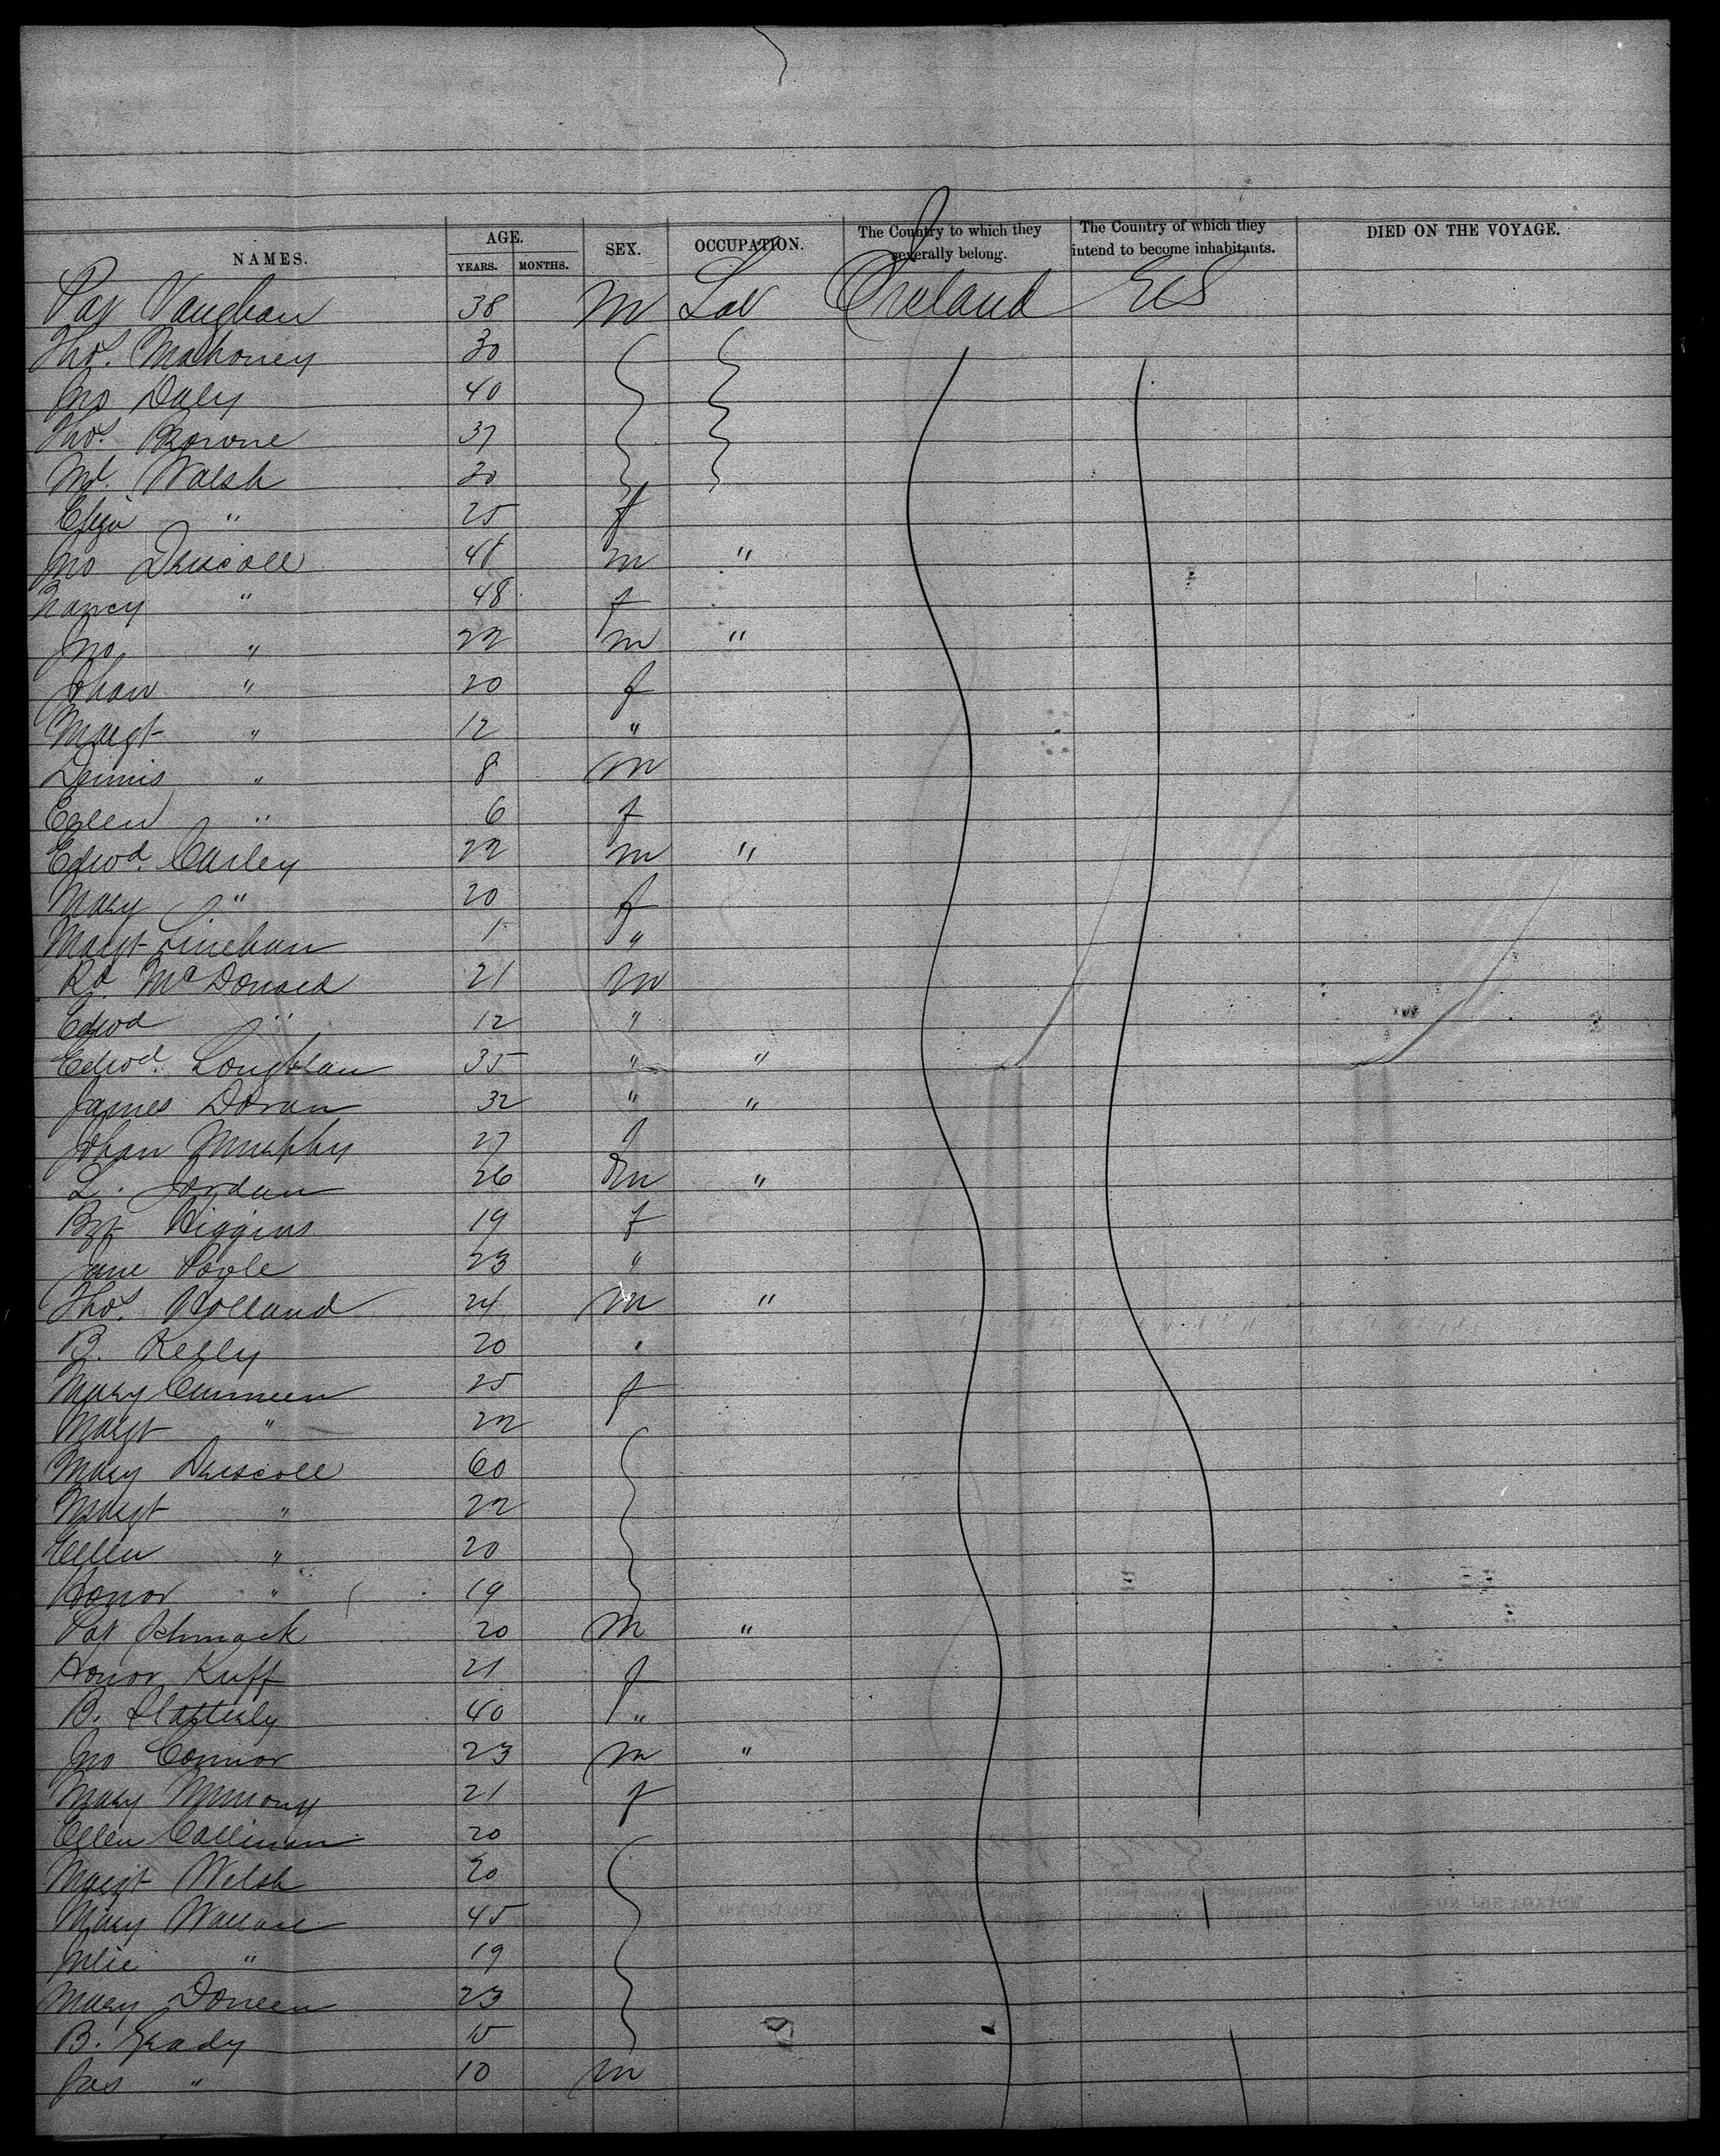 NAMES. AGE. YEARS. MONTHS. SEX. OCCUPATION. The Country to which they severally belong. The Country of which they intend to become inhabitants. DIED ON THE VOYAGE.
Pat Vaughan 38 m Lab Ireland US
Thos. Mahoney 30
Jno Daly 40
Thos. Browne 37
Ml. Walsh 20
Eliza " 25 f
Jno Driscoll 48 m "
Nancy " 48 f
Jno " 22 m "
Johan " 20 f
Margt " 12 "
Dennis " 8 m
Ellen " 6 f
Edwd. Curley 22 m "
Mary " 20 f
Margt Linehan 1 "
Rd. McDonald 21 m
Edwd " 12 "
Edwd. Loughlan 35 " "
James Doran 32 " "
Johan Murphy 27 f
L. Jordan 26 m "
Bgt Higgins 19 f
Jane Poole 23 "
Thos. Holland 24 m "
B. Kelly 20 "
Mary Cunneen 25 f
Margt " 22
Mary Driscoll 60
Margt " 22
Ellen " 20
Honor " 19
Pat 20 m "
Honor Kuff 21 f
B. Slatterly 40 "
Jno Connor 23 m "
Mary 21 f
Ellen Callinan 20
Margt Welsh 20
Mary Wallace 45
Julie " 19
Mary Doneen 23
B. Grady 15
Jas " 10 m